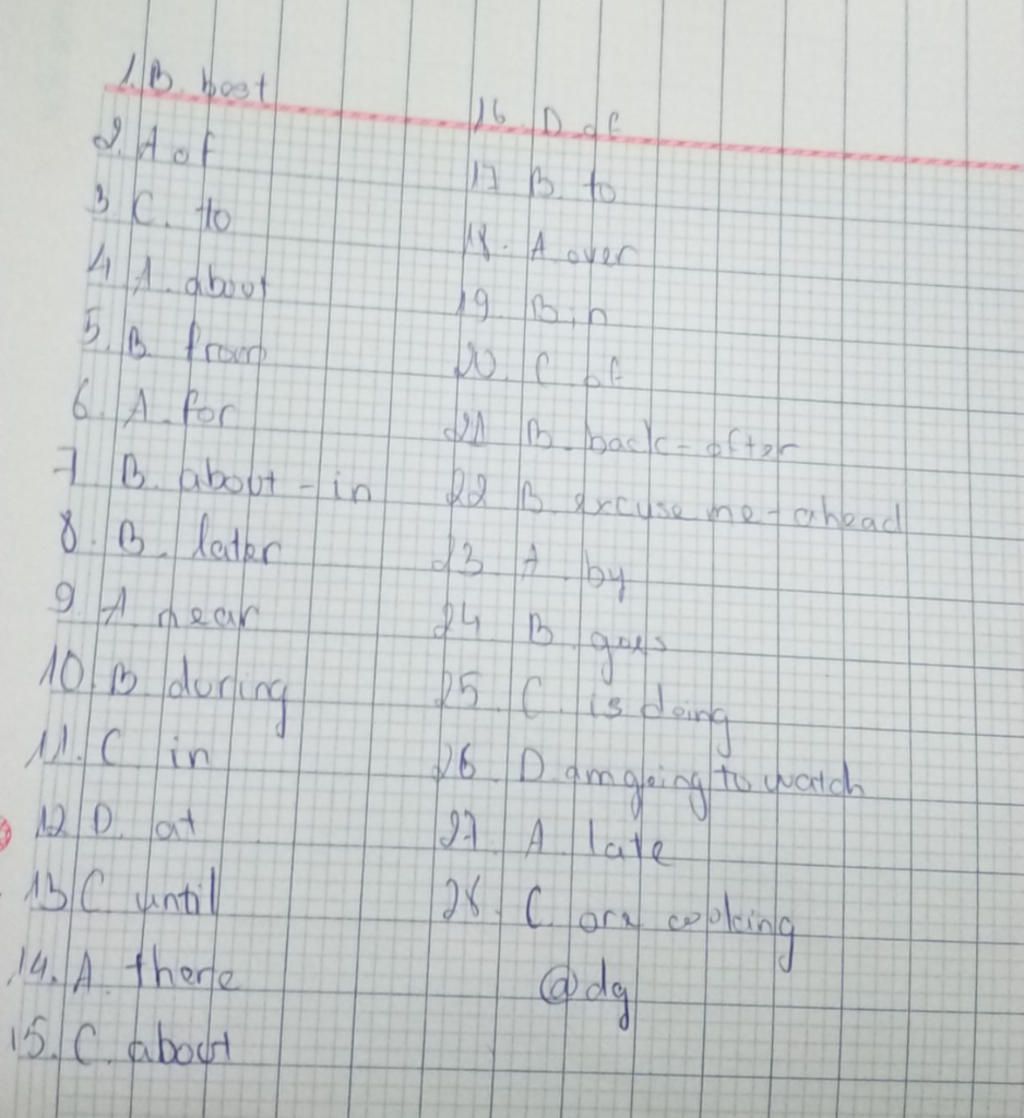 1. B. best
2. A of
3 C. to
4 A. about
5. B. from
6. A. for
7 B. about - in
8. B. later
9. A near
10. B during
11. C in
12 D. at
13 C until
14. A. there
15. C. about
16. D of
17 B to
18. A over
19. B in
20. C of
21 B. back - after
22 B excuse me - ahead
23 A. by
24 B. goes
25. C. is doing
26. D am going to watch
27 A late
28. C are cooking
@dg